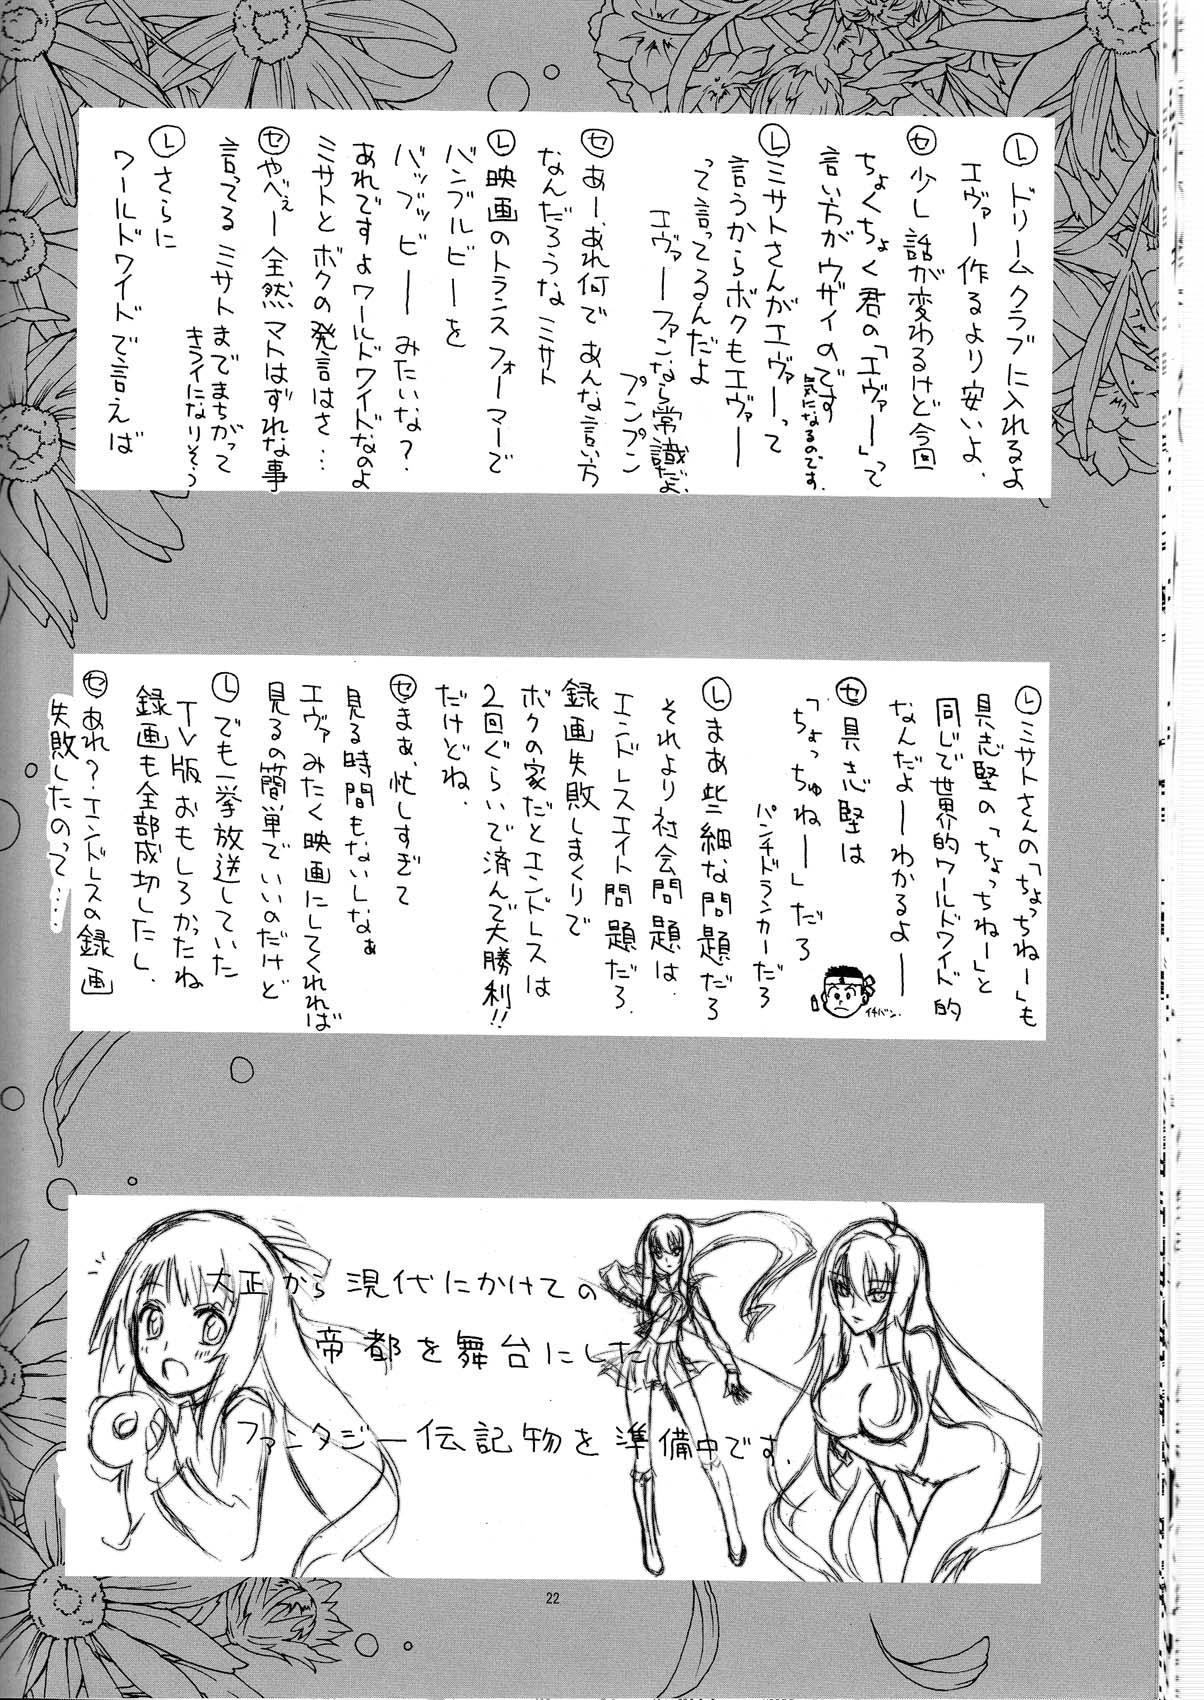 Ⓛドリームクラブに入れるよ
エヴァー作るより安いよ、
㋝少し話が変わるけど今回
ちょくちょく君の「エヴァー」って
言い方がウザイのです
気になるのです、
Ⓛミサトさんがエヴァーって
言うからボクもエヴァー
って言ってるんだよ
エヴァーファンなら常識だよ、
プンプン
㋝あー、あれ何であんな言い方
なんだろうなミサト
Ⓛ映画のトランスフォーマーで
バンブルビーを
バッブッビーーみたいな?
あれですよワールドワイドなのよ
ミサトとボクの発言はさ…
㋝やべぇー全然マトはずれな事
言ってるミサトまでまちがって
キライになりそう
Ⓛさらに
ワールドワイドで言えば
Ⓛミサトさんの「ちょっちねー」も
具志堅の「ちょっちねー」と
同じで世界的ワールドワイド的
なんだよーわかるよー
㋝具志堅は
「ちょっちゅねー」だろ
パンチドランカーだろ
イチバン、
Ⓛまあ些細な問題だろ
それより社会問題は、
エンドレスエイト問題だろ、
録画失敗しまくりで
ボクの家だとエンドレスは
2回ぐらいで済んで大勝利!!
だけどね、
㋝まぁ、忙しすぎて
見る時間もないしなぁ
エヴァみたく映画にしてくれれば
見るの簡単でいいのだけど
Ⓛでも一挙放送していた
TV版おもしろかったね
録画も全部成功したし、
㋝あれ?エンドレスの録画
失敗したのって….
大正から現代にかけての
帝都を舞台にした
ファンタジー伝記物を準備中です、
22